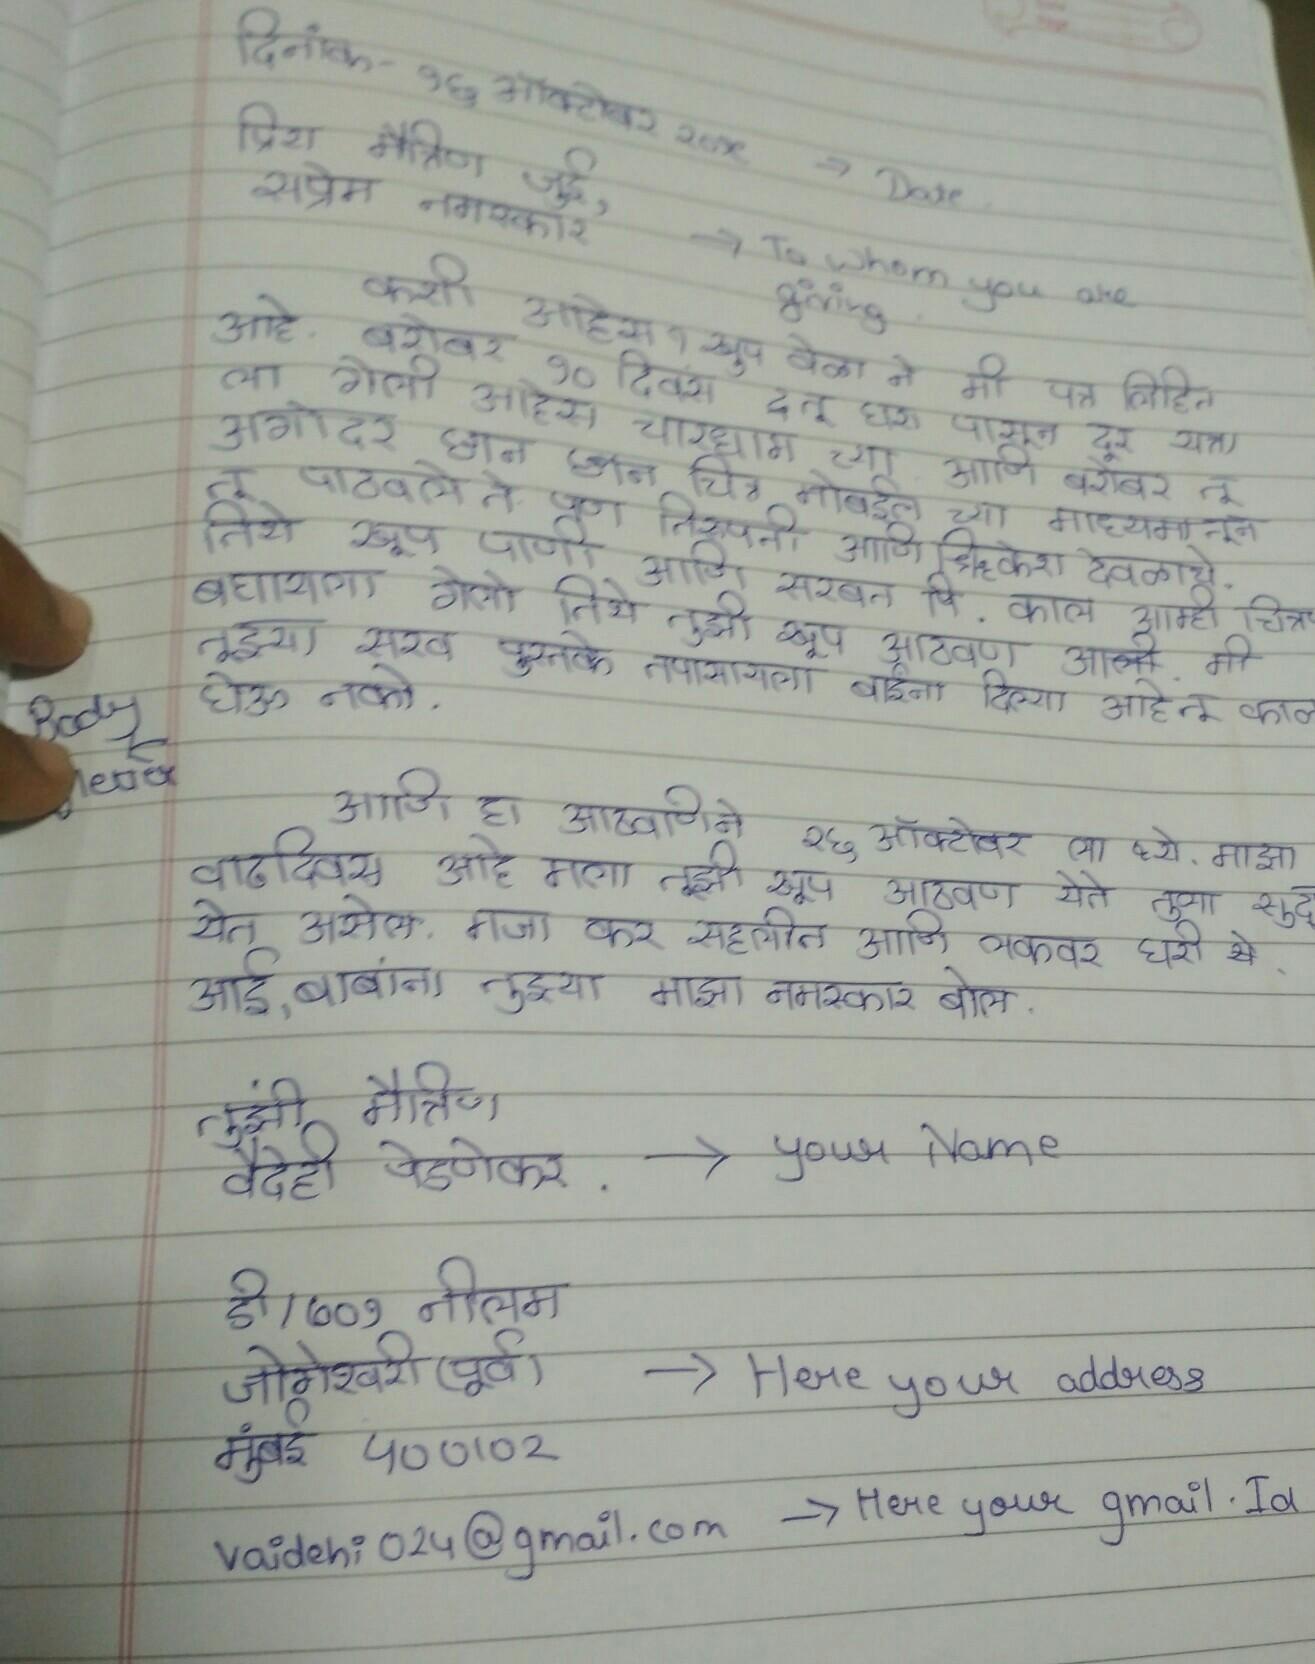 दिनांक- १६ ऑक्टोबर → Date
प्रिय मैत्रिण जुई,
सप्रेम नमस्कार → To whom you are giving
कशी आहेस? खूप वेळा ने मी पत्र लिहित
आहे. बरोबर १० दिवस तू घरा पासून दूर यात्रा
ला गेली आहेस चारधाम च्या. आणि बरोबर तू
अगोदर छान छान चित्र मोबईल च्या माध्यमातून
तू पाठवले ते पण तिरुपती आणि देवळाचे.
तिथे खूप पाणी आणि सरबत पि. काल आम्ही
बघायला गेलो तिथे तुझी खूप आठवण आली. मी
तुझ्या सरव पुस्तके तपासायला बाईंना दिल्या आहे तू
घेऊ नको.
Body
आणि हा आठवणिने २६ ऑक्टोबर ला माझा
वाढदिवस आहे मला तुझी खूप आठवण येते तुला
येत असेल. मजा कर सहलीत आणि लकवर घरी ये.
आई, बाबांना तुझ्या माझा नमस्कार बोल.
तुझी मैत्रिण
वैदेही पेडणेकर. → your Name
डी/७०१ नीलम
जोगेश्वरी (पूर्व) → Here your address
मुंबई ४००१०२
vaidehi024@gmail.com → Here your gmail.Id